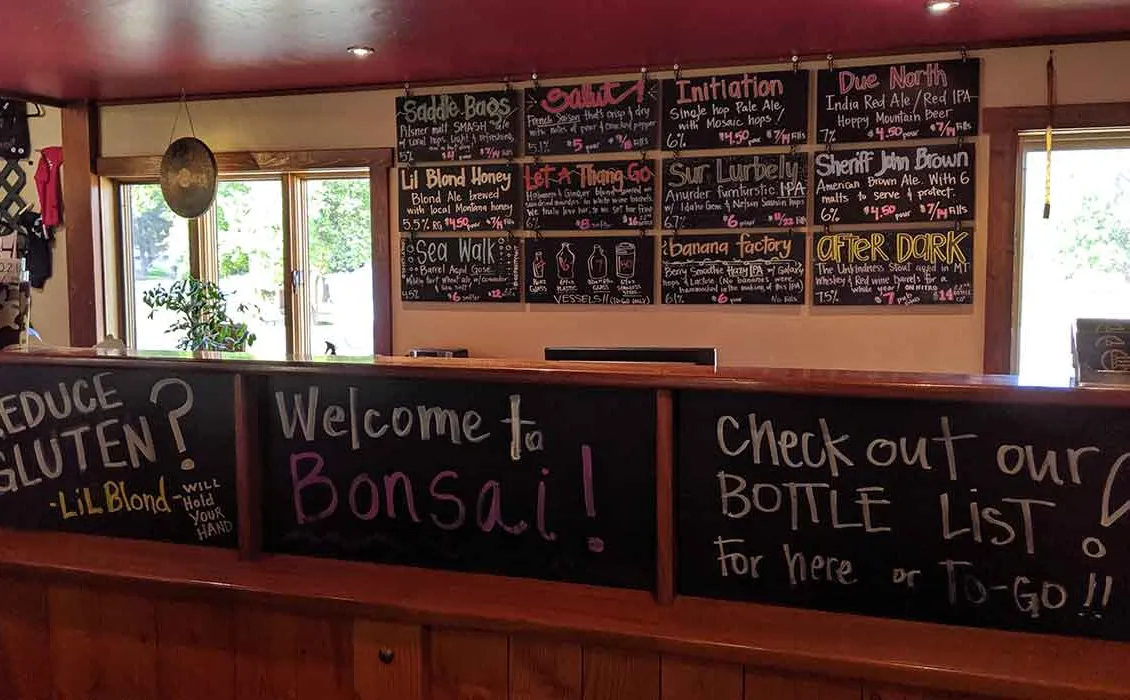 Saddle Bags
Pilsner malt SMASH ale
of local hops. Light & refreshing.
5% $4
Salut!
French Saison that's crisp & dry
with notes of pear & cracked pepper
5.1% $5 pour
Initiation
Single hop Pale Ale,
with Mosaic hops!
6% $4.50 pour $7/14 fills
Due North
India Red Ale/Red IPA
Hoppy Mountain Beer
7% $4.50 pour $7/14 fills
Lil Blond Honey
Blond Ale brewed
with local Montana honey
5.5% RG $4.50 pour $7/14
Let A Thang Go
Sur Lurbely
IPA
Idaho Gem & Nelson Sauvin hops
6.7% $6 pour
Sheriff John Brown
American Brown Ale. With 6
malts to serve & protect.
6% $4.50 pour $7/14 fills
Sea Walk
Barrel Aged Gose
4.5% $6
VESSELS!! (TO GO ONLY)
banana factory
Berry Smoothie Hazy IPA w/ Galaxy
hops & Lactose (No bananas were
harmed in the making of this IPA)
6.1% $6 No fills
AFTER DARK
The Unkindness Stout aged in MT
whiskey & Red wine barrels for a
whole year! ON NITRO
7.5% $7 $14
EDUCE
GLUTEN?
-LiL Blond- WILL
Hold
YOUR
HAND
Welcome to
Bonsai!
Check out our
BOTTLE LiST!
For here or TO-GO!!